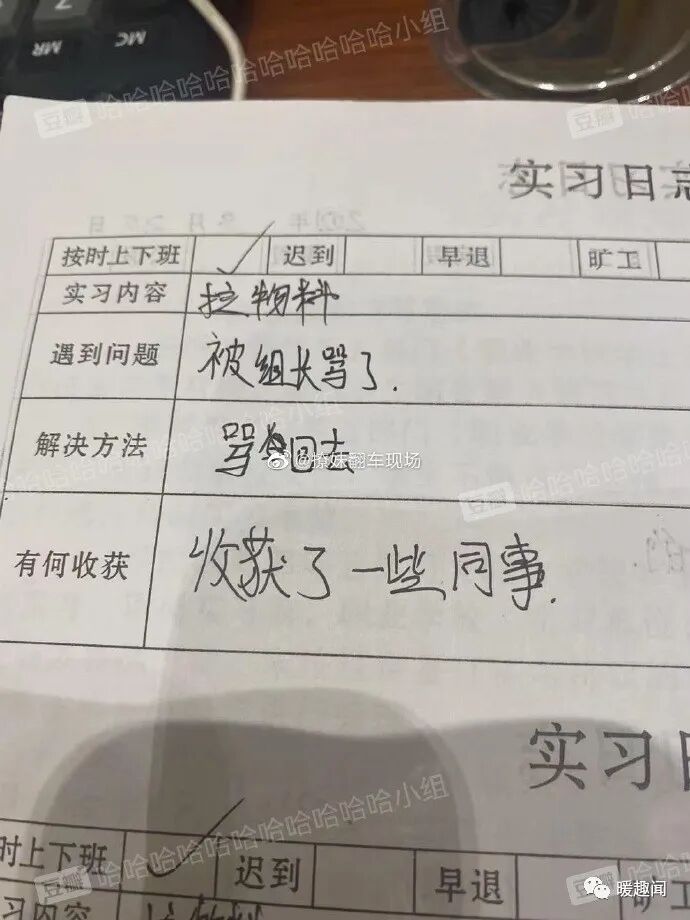 MR
MC
实习日志
2021年
月
日
按时上下班 ✓ 迟到 早退 旷工
实习内容 拉物料
遇到问题 被组长骂了.
解决方法 骂回去
@撩妹翻车现场
有何收获 收获了一些同事.
实习日
时上下班 ✓ 迟到 早退 旷工
习内容
豆瓣 哈哈哈哈哈哈哈哈哈哈小组
暖趣闻